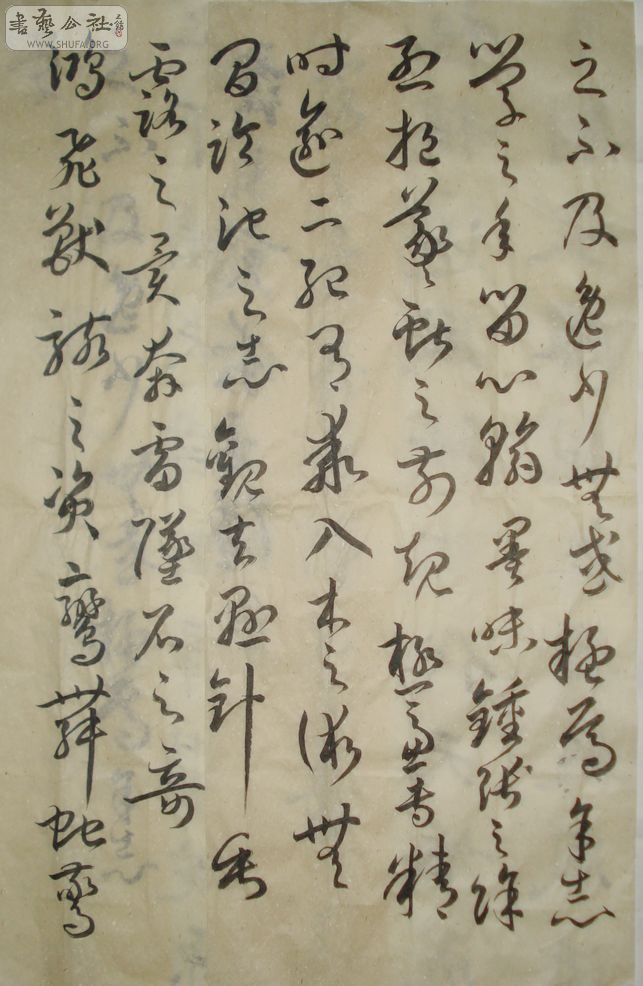 書藝公社
WWW.SHUFA.ORG
之不及逸少無或疑焉余志
學之年留心翰墨味鍾張之餘
烈挹羲獻之前規極慮專精
時逾二紀有乖入木之術無
間臨池之志觀夫懸針垂
露之異奔雷墜石之奇
鴻飛獸駭之資鸞舞蛇驚